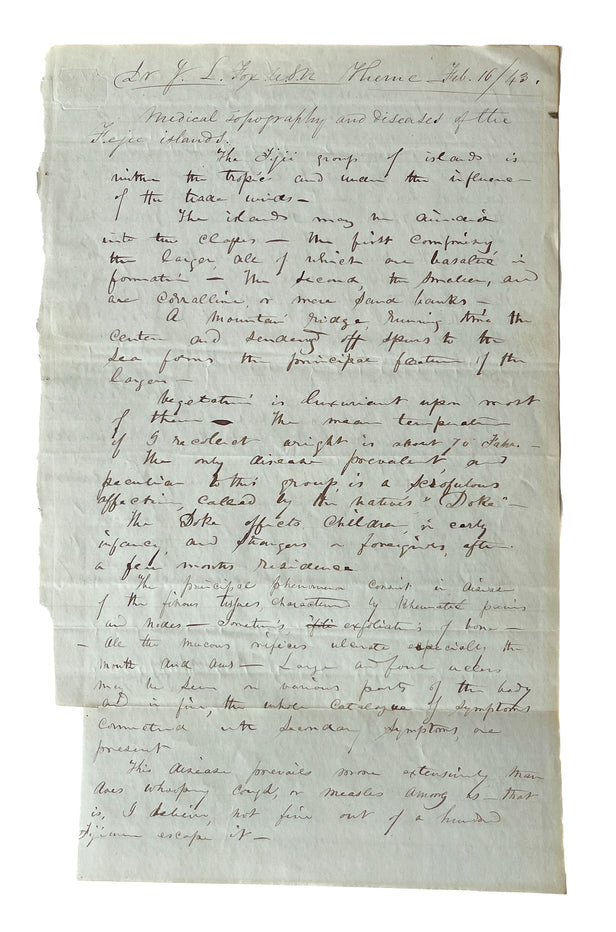 Dr J. L. Fox U.S.N Theme Feb. 16/43.
Medical topography and diseases of the
Fejee islands.
The Fijii group of islands is
within the tropics and under the influence
of the trade winds—
The islands may be divided
into two classes— the first comprising
the larger, all of which are basaltic in
formation— The second, the smaller, and
are corralline, or mere sand banks—
A mountain ridge, running thro the
center and sending off spurs to the
sea forms the principal feature of the
larger—
Vegetation is luxuriant upon most
of them— The mean temperature
if I recollect aright is about 70 Fahr.—
The only disease prevalent, and
peculiar to this group, is a scrofulous
affection, called by the natives "Doke"—
The Doke affects, children, in early
infancy, and strangers or foreigners, after
a few months residence
The principal phenomena consist in disease
of the fibrous tissues, characterized by Rheumatic pains
and nodes— Sometimes, exfoliations of bone—
— All the mucous orifices ulcerate especially the
mouth and anus— Large and foul ulcers
may be seen on various parts of the body
and in fine, the whole catalogue of symptoms
connected with secondary symptoms, are
present
This disease prevails more extensively than
does whooping cough, or measles among us— that
is, I believe, not five out of a hundred
Fijiians escape it—